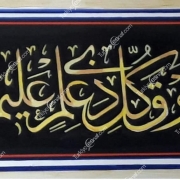 وفوق كل ذي علم عليم